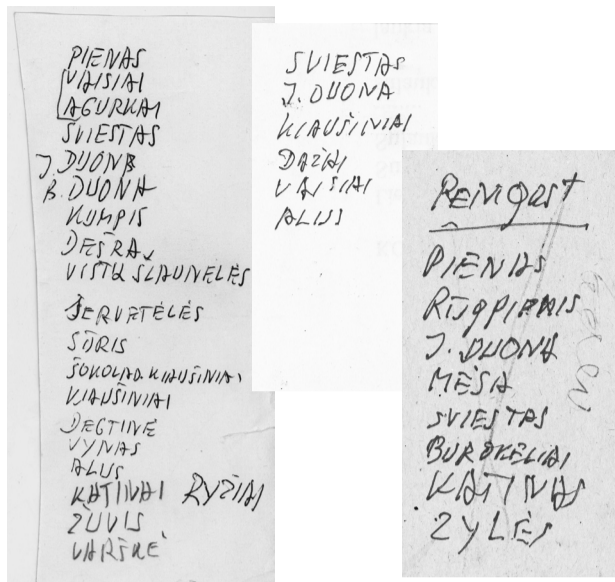 PIENAS
VAISIAI
AGURKAI
SVIESTAS
J. DUONA
B. DUONA
KUMPIS
DEŠRA
VIŠTŲ ŠLAUNELĖS
ŠERVETĖLĖS
SŪRIS
ŠOKOLAD. KIAUŠINIAI
KIAUŠINIAI
DEGTINĖ
VYNAS
ALUS
KATINAI RYŽIAI
ŽUVIS
VARŠKĖ
SVIESTAS
J. DUONA
KIAUŠINIAI
DAŽAI
VAISIAI
ALUS
PIENAS
RŪGPIENIS
J. DUONA
MĖSA
SVIESTAS
BUROKĖLIAI
KATINAS
ZYLĖS